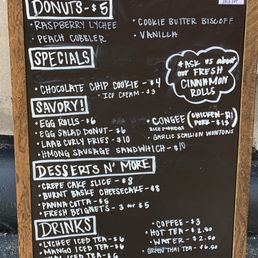 DONUTS - $5
• RASPBERRY LYCHEE
• PEACH COBBLER
• COOKIE BUTTER BISCOFF
• VANILLA
SPECIALS
• CHOCOLATE CHIP COOKIE - $4
• ICE CREAM - $3
*ASK US about
OUR FRESH
CINNAMON
ROLLS
SAVORY!
• EGG ROLLS - $6
• EGG SALAD DONUT - $6
• LAAB CURLY FRIES - $10
• HMONG SAUSAGE SANDWICH - $10
• CONGEE
RICE PORRIDGE
CHICKEN - $11
PORK - $13
GARLIC SCALLION WONTONS
DESSERTS N' MORE
• CREPE CAKE SLICE - $8
• BURNT BASKE CHEESECAKE - $8
• PANNA COTTA - $5
• FRESH BEIGNETS - 3 for $5
DRINKS
• LYCHEE ICED TEA - $6
• MANGO ICED TEA - $6
ICED TEA - $6
• COFFEE - $3
• HOT TEA - $2.50
• WATER - $2.50
• GREEN THAI TEA - $6.50